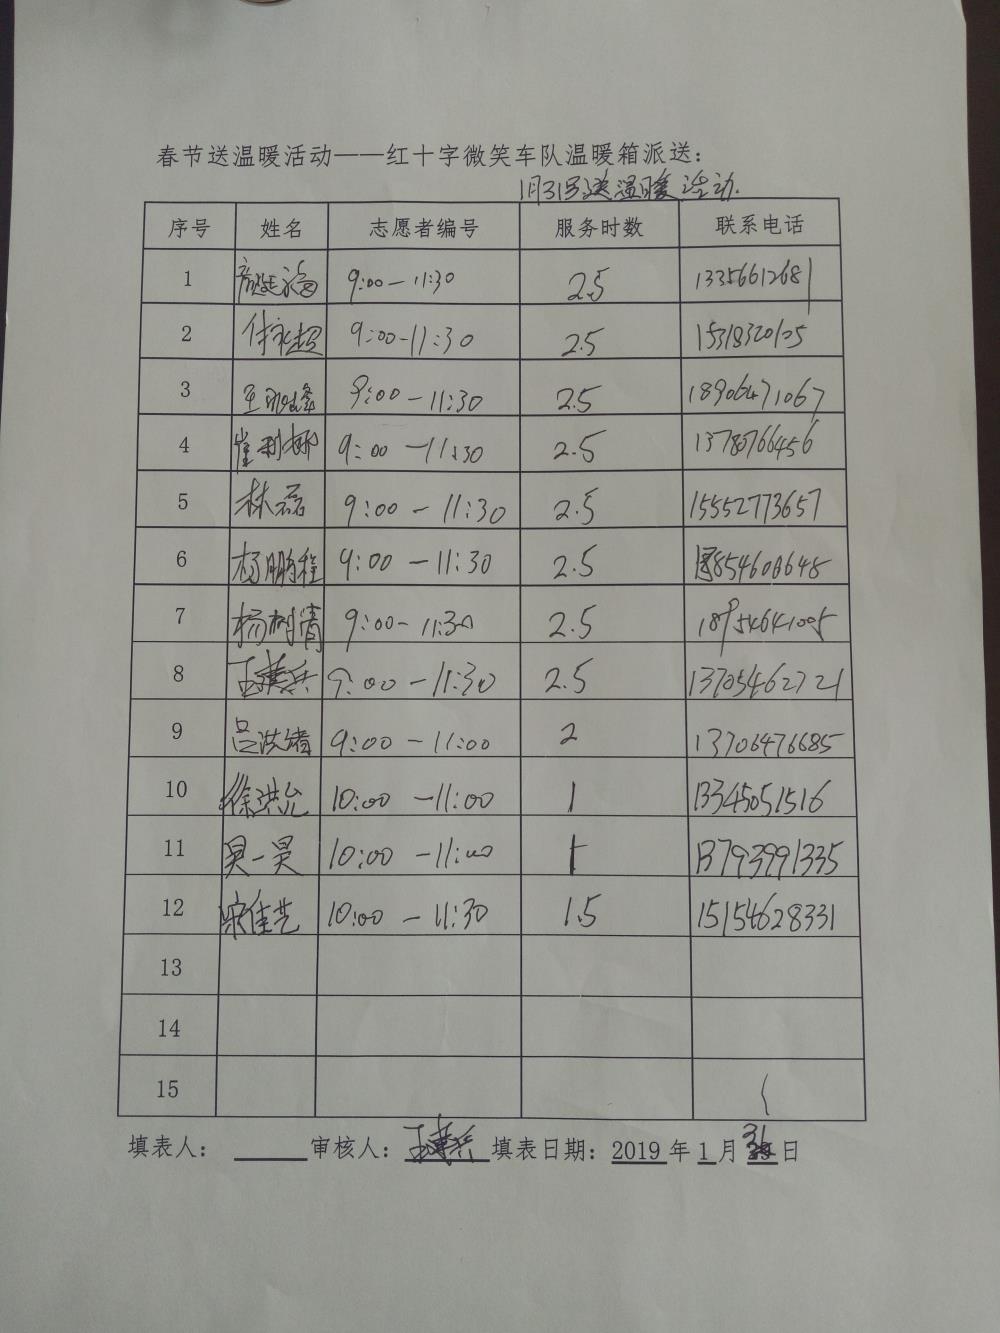 春节送温暖活动——红十字微笑车队温暖箱派送：
1月31号送温暖活动.
序号 姓名 志愿者编号 服务时数 联系电话
1 9:00—11:30 2.5 13356612681
2 付永超 9:00-11:30 2.5 15318320125
3 9:00-11:30 2.5 18906471067
4 崔利娜 9:00-11:30 2.5 13780766456
5 林磊 9:00-11:30 2.5 15552773657
6 杨鹏程 9:00-11:30 2.5
7 杨树清 9:00-11:30 2.5 18954641005
8 9:00-11:30 2.5 13705462721
9 吕洪绪 9:00-11:00 2 13706476685
10 徐洪允 10:00-11:00 1 13345051516
11 吴一昊 10:00-11:00 1 13793991335
12 宋佳艺 10:00-11:30 1.5 15154628331
13
14
15
填表人： 审核人： 填表日期：2019年1月31日